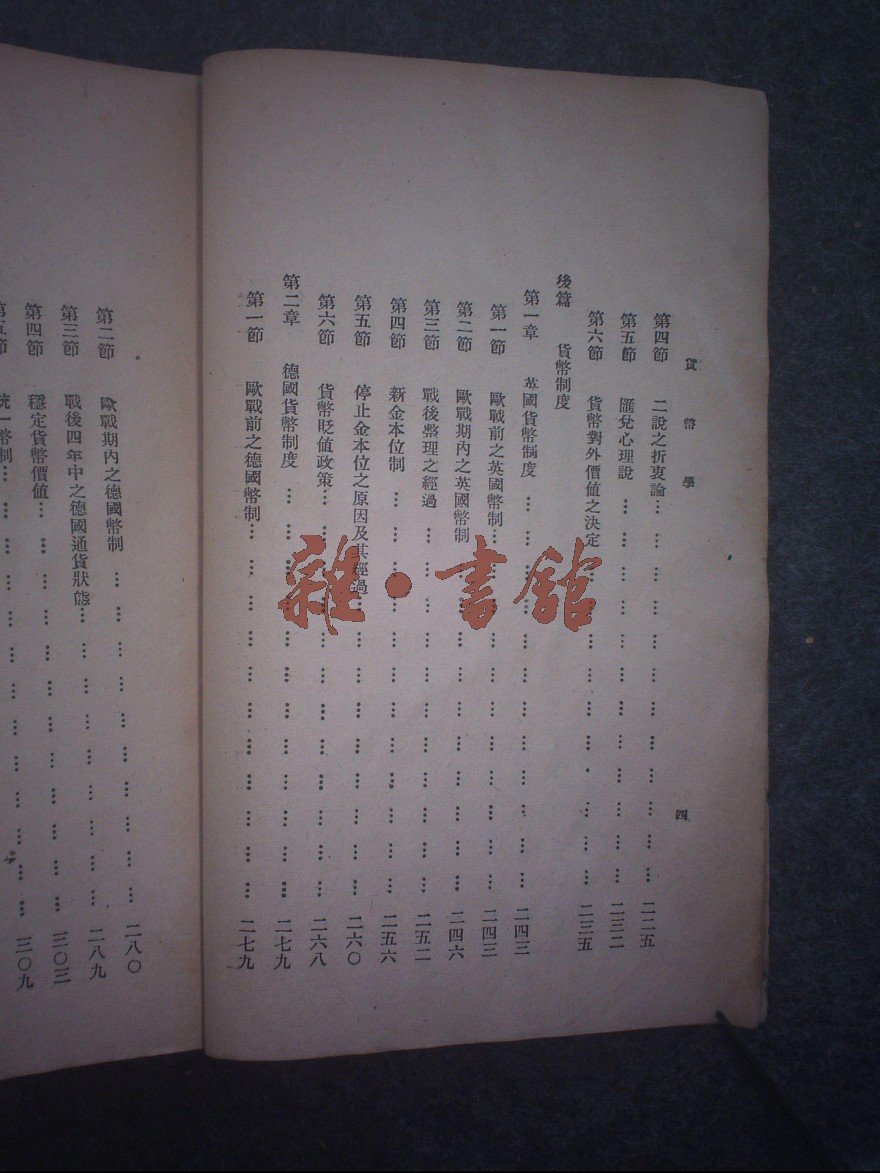 貨幣學
四
第四節 二說之折衷論……二二五
第五節 匯兌心理說……二三二
第六節 貨幣對外價值之決定……二三五
後篇 貨幣制度
第一章 英國貨幣制度……二四三
第一節 歐戰前之英國幣制……二四三
第二節 歐戰期內之英國幣制……二四六
第三節 戰後整理之經過……二五二
第四節 新金本位制……二五六
第五節 停止金本位之原因及其經過……二六〇
第六節 貨幣貶値政策……二六八
第二章 德國貨幣制度……二七九
第一節 歐戰前之德國幣制……二七九
第二節 歐戰期內之德國幣制……二八〇
第三節 戰後四年中之德國通貨狀態……二八九
第四節 穩定貨幣價値……三〇三
第五節 統一幣制……三〇九
雜·書館